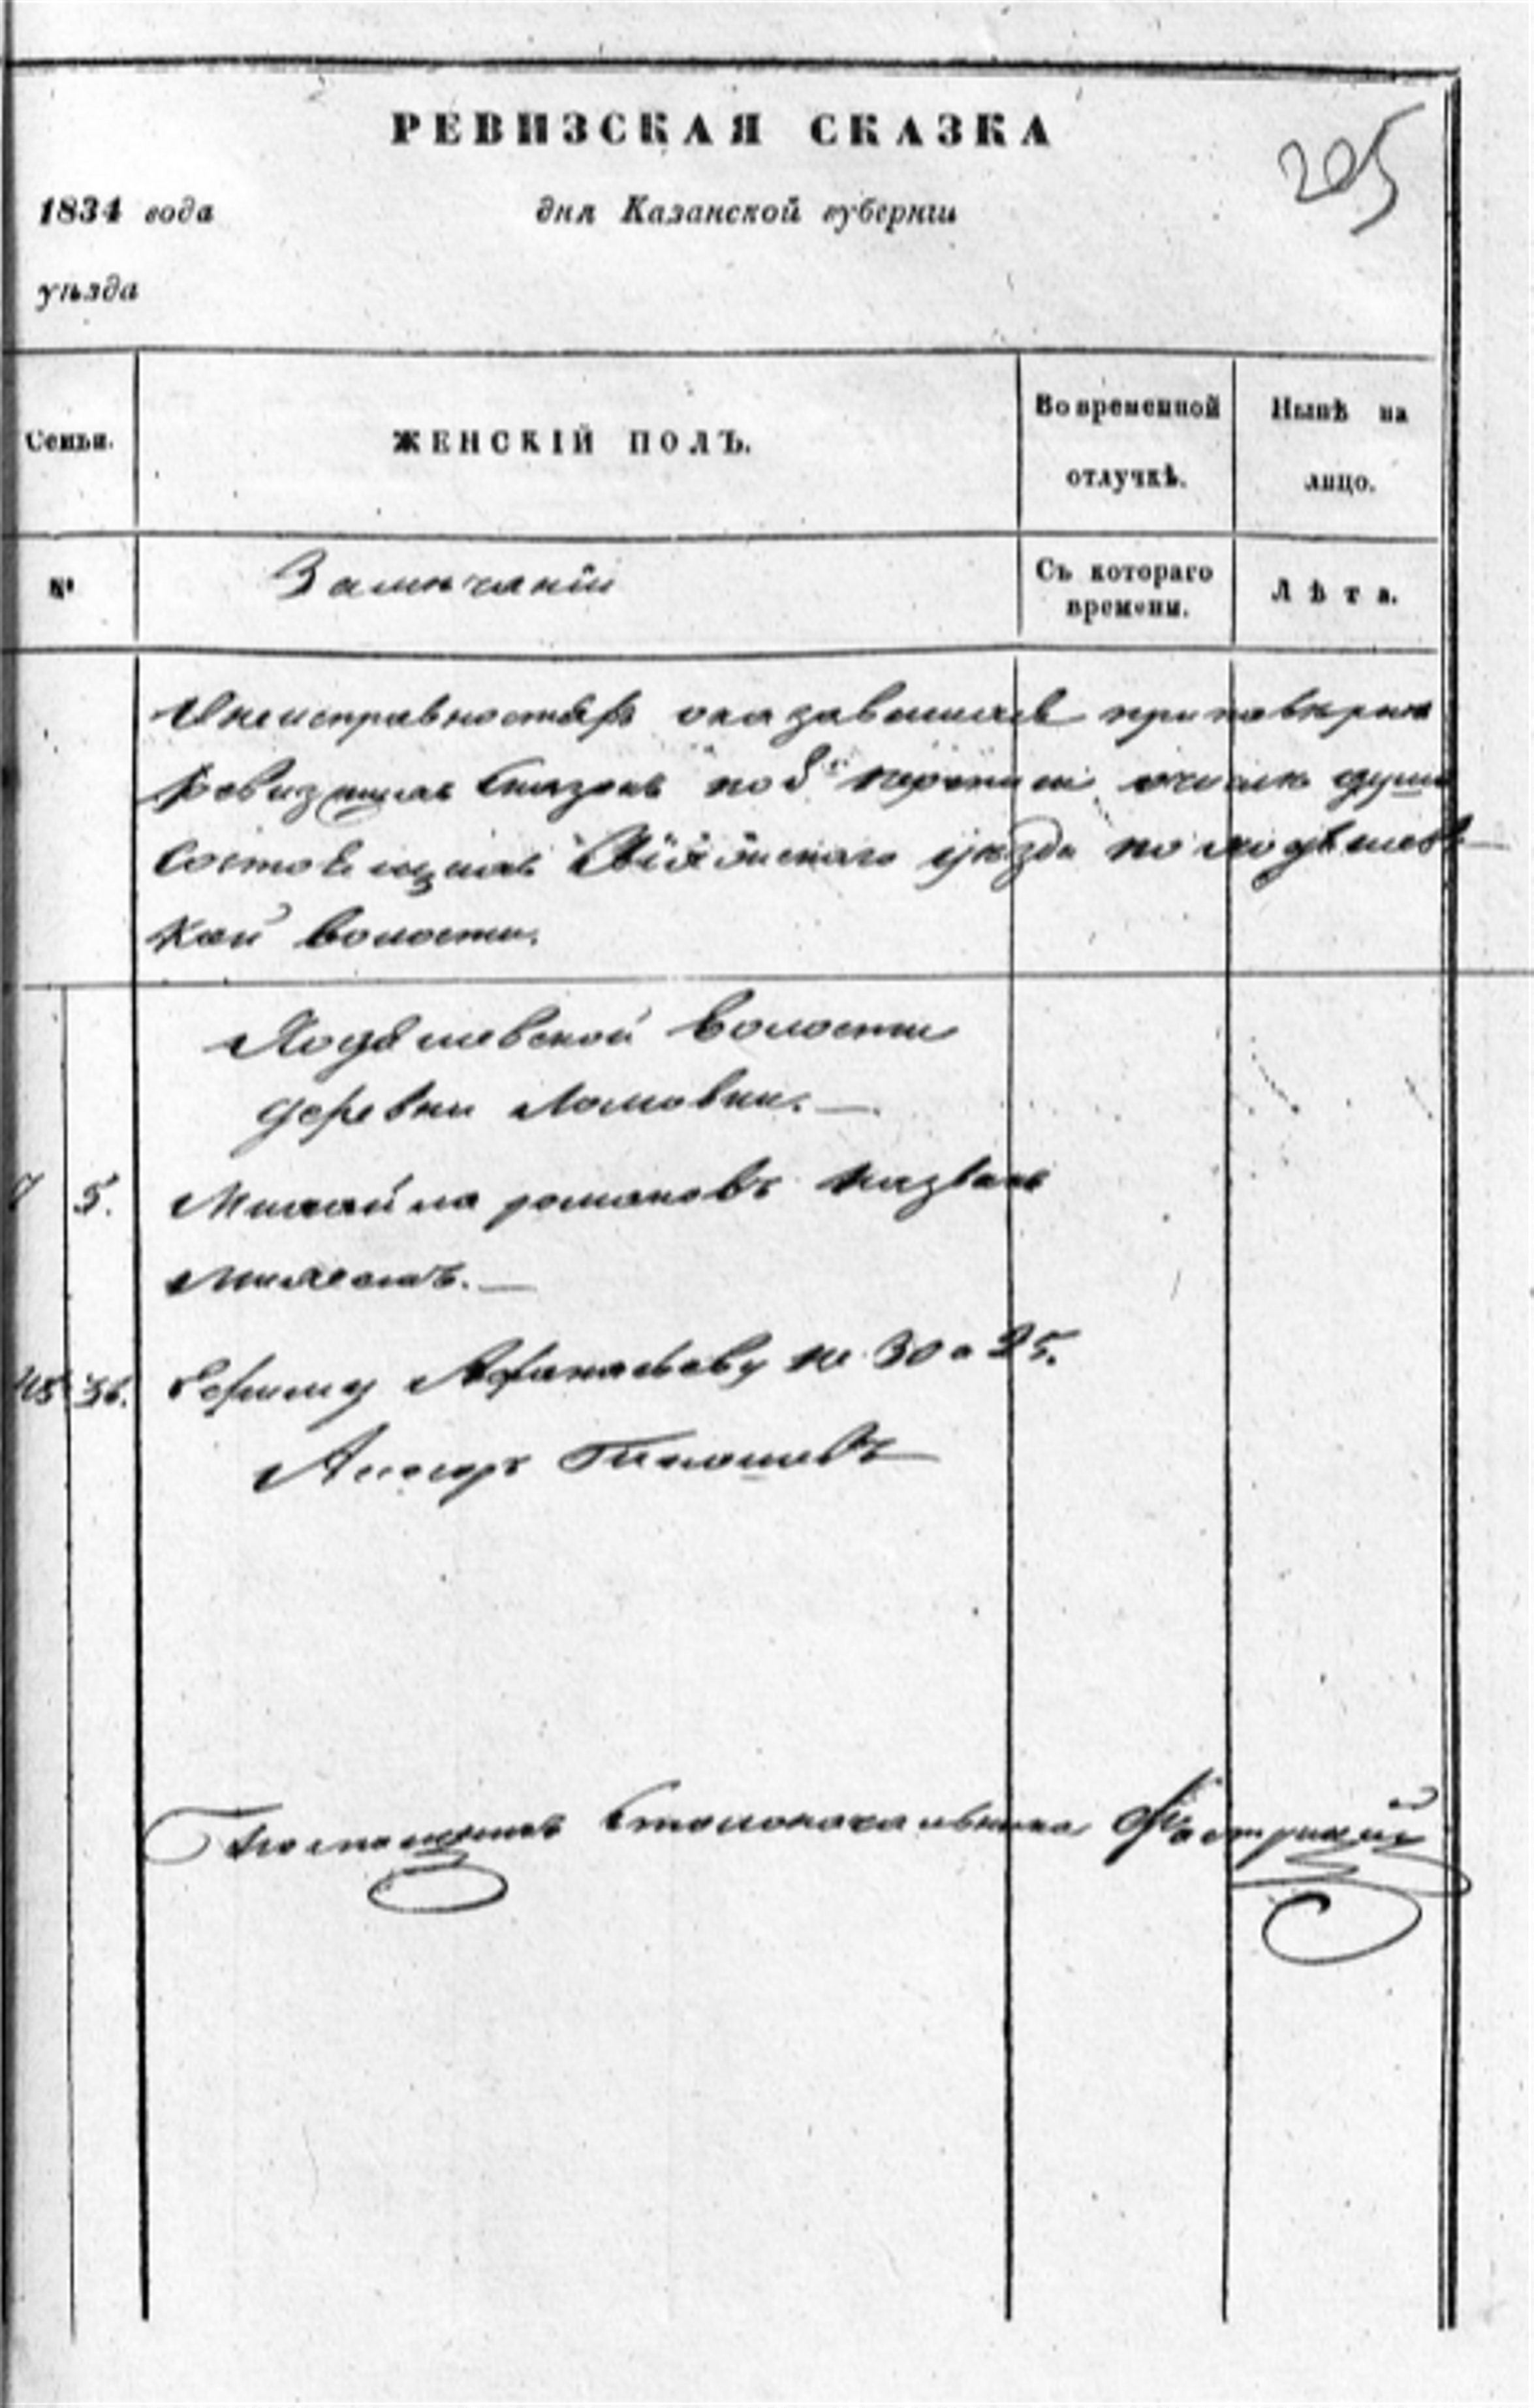 РЕВИЗСКАЯ СКАЗКА
205
1834 года дня Казанской губернiи
уѣзда
Семьи.
ЖЕНСКIЙ ПОЛЪ.
Во временной отлучкѣ.
Нынѣ на лицо.
№
Замѣчанiи
Съ котораго времени.
Лѣта.
О неисправностяхъ оказавшихся при повѣрке
ревизскихъ сказокъ по 8 переписи о числѣ душъ
состоящихъ Свiяжскаго уѣзда по
кой волости.
волости
деревни Ломовки.
7 5. Михайла романовъ назван
45 36. Ефиму Афанасьеву не 30 а 25.
Помощникъ Столоначальника